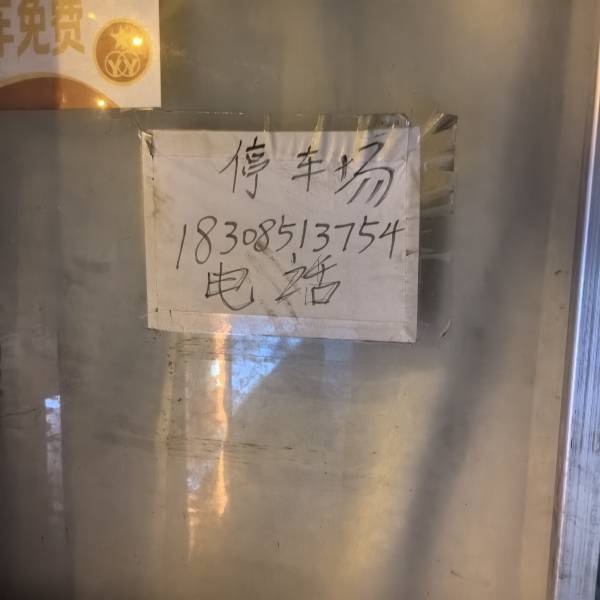 车免费
停车场
18308513754
电话